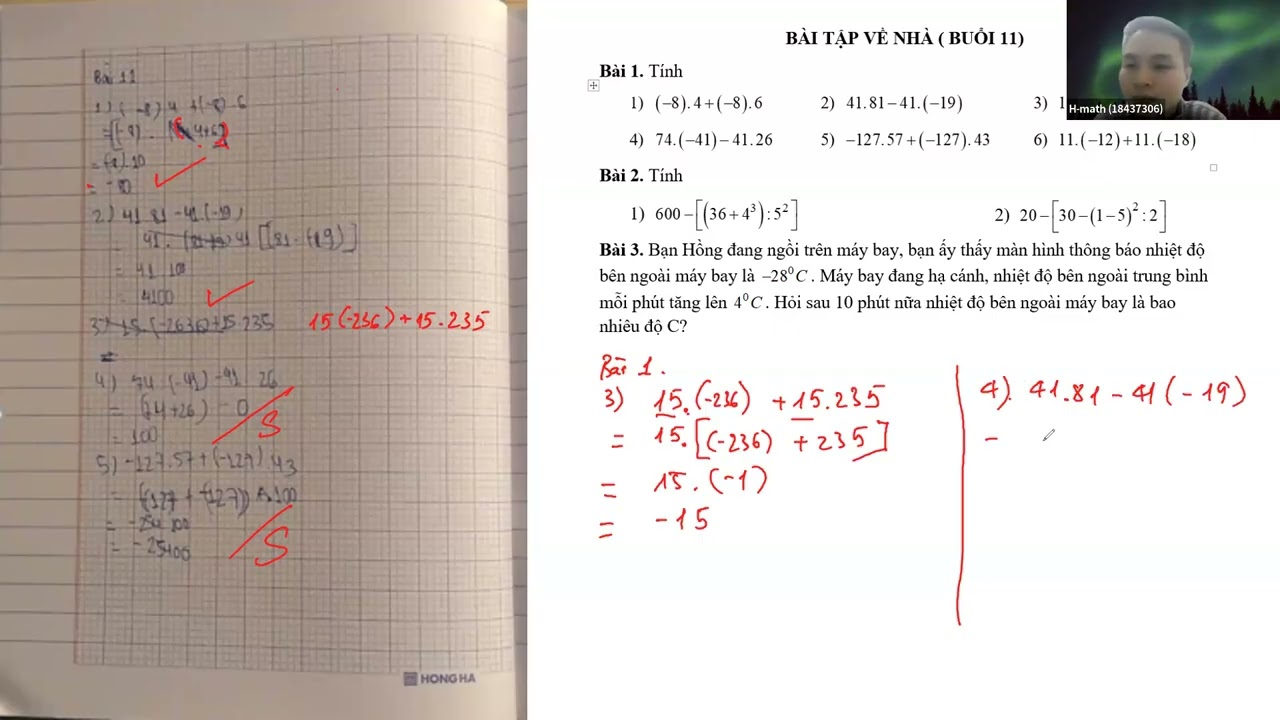 Bài 11
1) (-8).4 + (-8).6
= (-8). (4+6)
= (-8).10
= -80
2) 41.81 - 41.(-19)
= 41. [81-(-19)]
= 41.100
= 4100
15(-236) + 15.235
4) 74.(-41) - 41.26
= (74+26) - 0
= 100
S
5) -127.57 + (-127).43
= (127 + (-127)) . 100
= -254.100
= -25400
S
HONG HA
BÀI TẬP VỀ NHÀ ( BUỔI 11)
Bài 1. Tính
1) (−8).4+(−8).6 2) 41.81−41.(−19) 3) 1
4) 74.(−41)−41.26 5) −127.57+(−127).43 6) 11.(−12)+11.(−18)
Bài 2. Tính
1) 600−[(36+4³):5²] 2) 20−[30−(1−5)²:2]
Bài 3. Bạn Hồng đang ngồi trên máy bay, bạn ấy thấy màn hình thông báo nhiệt độ
bên ngoài máy bay là −28⁰C. Máy bay đang hạ cánh, nhiệt độ bên ngoài trung bình
mỗi phút tăng lên 4⁰C. Hỏi sau 10 phút nữa nhiệt độ bên ngoài máy bay là bao
nhiêu độ C?
Bài 1.
3) 15.(-236) + 15.235
= 15.[(-236) + 235]
= 15.(-1)
= -15
4). 41.81 - 41(-19)
-
H-math (18437306)